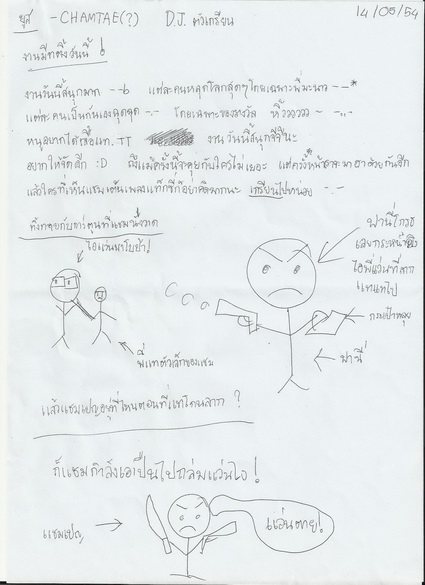 -CHAMTAE(?) D.J. ตัวเกรียน 14/05/54
งานมีทติ้งวันนี้ !
งานวันนี้สนุกมาก --b แต่ละคนหลุดโลกสุดๆโดยเฉพาะพี่มะนาว --*
แต่ละคนเป็นกันเอง -.- โดยเฉพาะของรางวัล หิ้ววววว ~
หนูอยากได้เสื้อแท. TT งานวันนี้สนุก
อยากให้จัดอีก :D ถึงแม้ครั้งนี้จะคุยกับใครไม่เยอะ แต่คราวหน้า มาฮาด้วยกันอีก
แล้วใครที่เห็นแชมเต้นเพลงแท็กซี่ก็อย่าคิดมากนะ เกรียนไปหน่อย -.-
ทิ้งทายกับการ์ตูนที่แชมวาด
ไอแว่นมานี่ย่ะ!
พี่แทตัวเล็กของแชม
ฟานี่โกรธ
เลยกระหน่ำยิง
ไอพี่แว่นที่ลาก
แทแทไป
ฟานี่
แล้วแชมเปญอยู่ที่ไหนตอนที่แทโดนลาก ?
ก็แชมกำลังเอาปืนไปถล่มแว่นไง !
แชมเปญ
แว่นตาย!